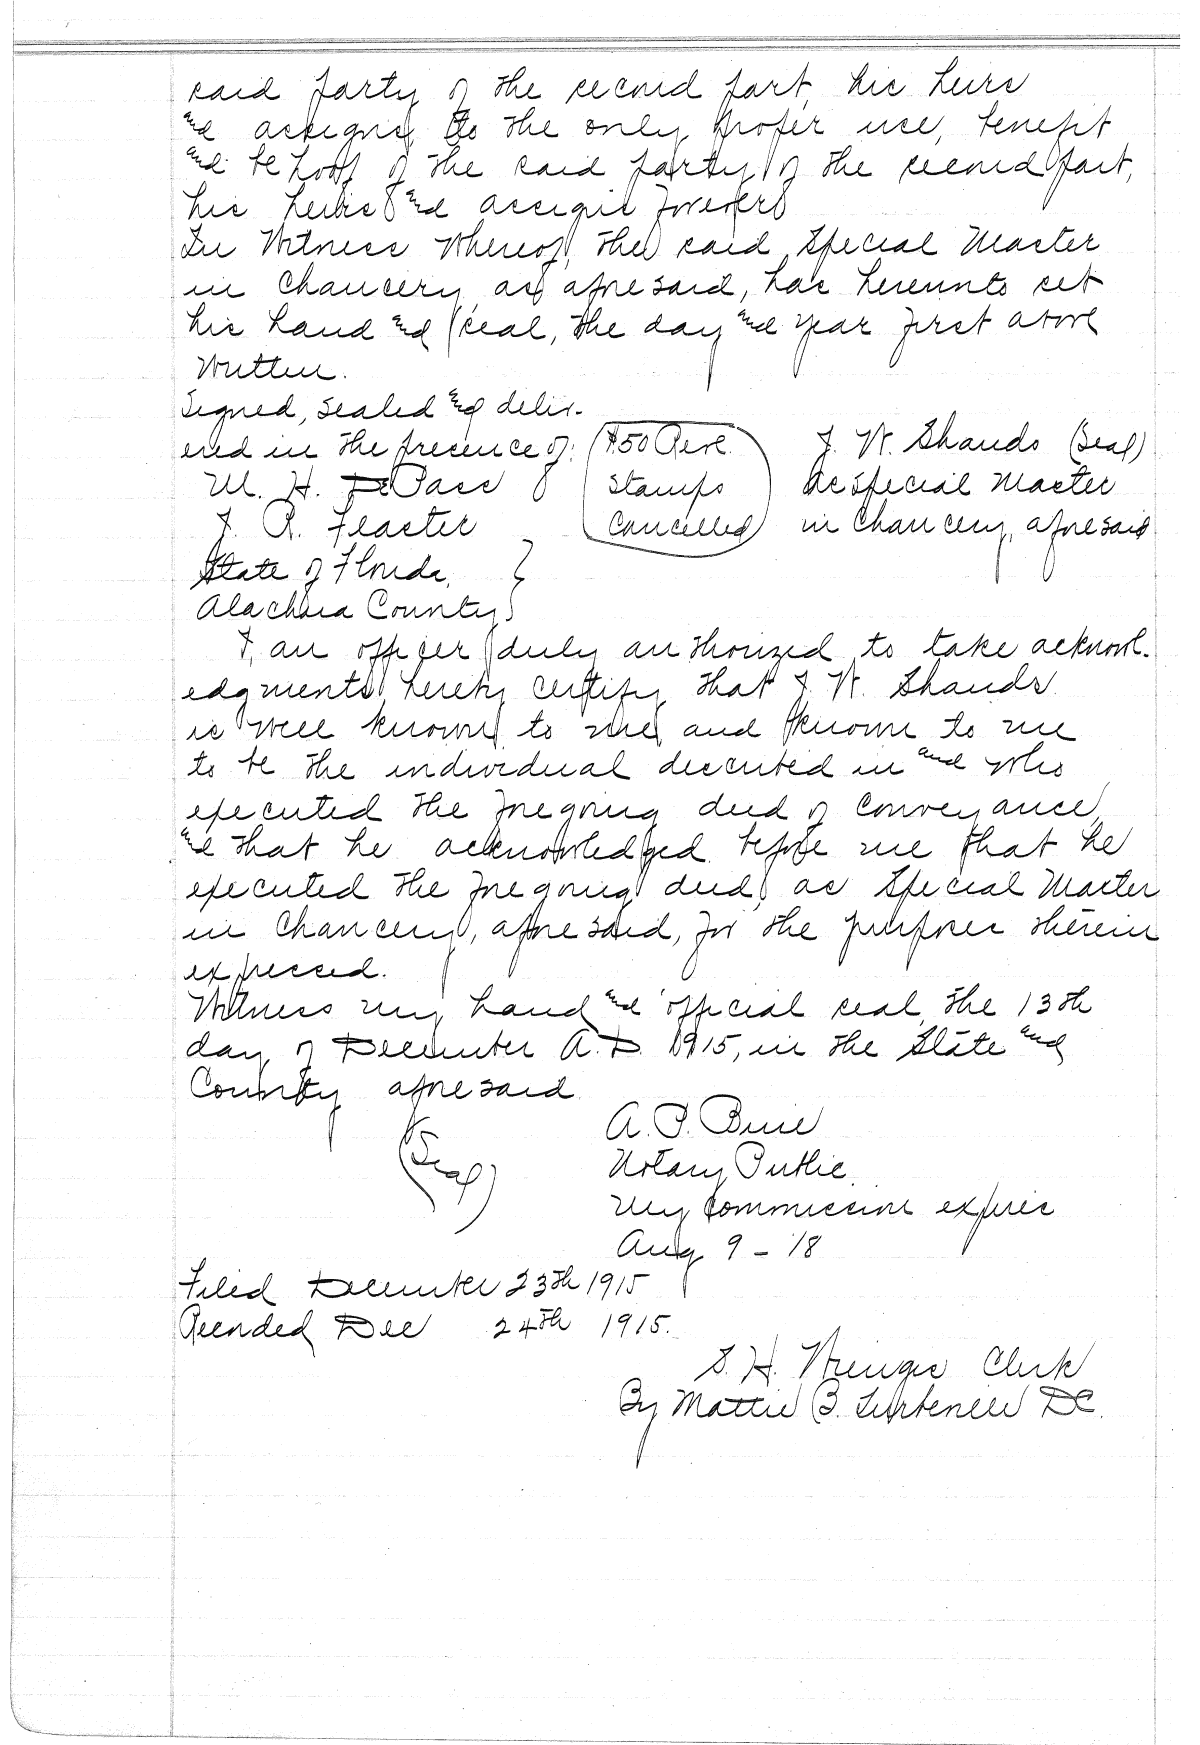 said party of the second part, his heirs
and assigns to the only proper use, benefit
and behoof of the said party of the second part,
his heirs and assigns forever
In Witness Whereof, the said Special Master
in Chancery as aforesaid, has hereunto set
his hand and seal, the day and year first above
Written.
Signed, sealed and deliv-
ered in the presence of:
M. H. DePass
J. R.
$.50 Reve
Stamps
Cancelled
J. W. Shands (Seal)
As Special Master
in Chancery, aforesaid
State of Florida,
Alachua County
I, an officer duly authorized to take acknowl-
edgments hereby certify that J. W. Shands
is well known to me and known to me
to be the individual described in and who
executed the foregoing deed of conveyance,
and that he acknowledged before me that he
executed the foregoing deed, as Special Master
in Chancery, aforesaid, for the purposes therein
expressed.
Witness my hand and official seal, the 13th
day of December A.D. 1915, in the State and
County aforesaid
(Seal)
A. P.
Notary Public
My Commission expires
Aug 9 - '18
Filed December 23th 1915
Recorded Dec 24th 1915.
S. H. Wienges Clerk
By Mattie B. DC.